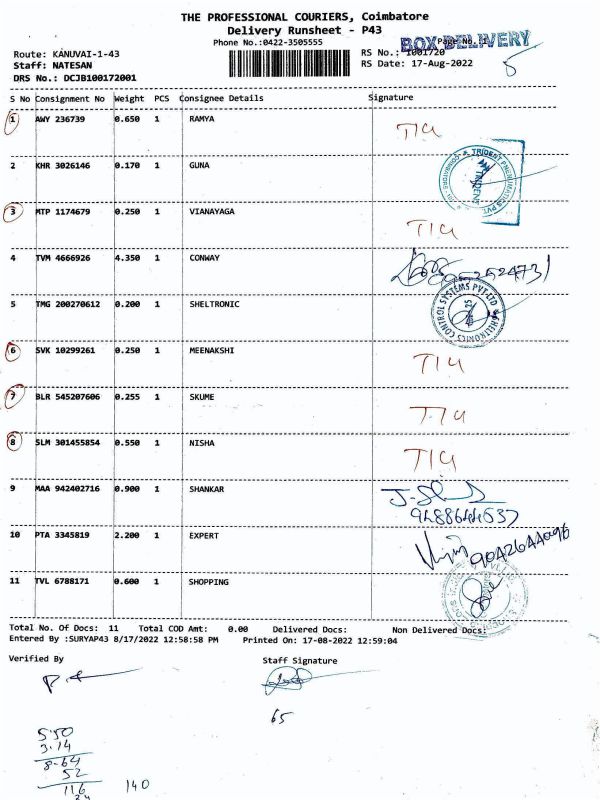 THE PROFESSIONAL COURIERS, Coimbatore
Delivery Runsheet - P43
Phone No.:0422-3505555
BOX DELIVERY
Page No.:1
Route: KANUVAI-1-43
RS No.: 1001720
Staff: NATESAN
RS Date: 17-Aug-2022
DRS No.: DCJB100172001
S No Consignment No Weight PCS Consignee Details Signature
1 AWY 236739 0.650 1 RAMYA
2 KHR 3026146 0.170 1 GUNA
TRIDENT PNEUMATICS PVT.
TRIDENT
3 MTP 1174679 0.250 1 VIANAYAGA
4 TVM 4666926 4.350 1 CONWAY
5 TMG 200270612 0.200 1 SHELTRONIC
SHELTRONICS CONTROL SYSTEMS PVT LTD
6 SVK 10299261 0.250 1 MEENAKSHI
7 BLR 545207606 0.255 1 SKUME
8 SLM 301455854 0.550 1 NISHA
9 MAA 942402716 0.900 1 SHANKAR
10 PTA 3345819 2.200 1 EXPERT
11 TVL 6788171 0.600 1 SHOPPING
Total No. Of Docs: 11 Total COD Amt: 0.00 Delivered Docs: Non Delivered Docs:
Entered By :SURYAP43 8/17/2022 12:58:58 PM Printed On: 17-08-2022 12:59:04
Verified By Staff Signature
65
5.50
3.14
8-64
52
116 140
24